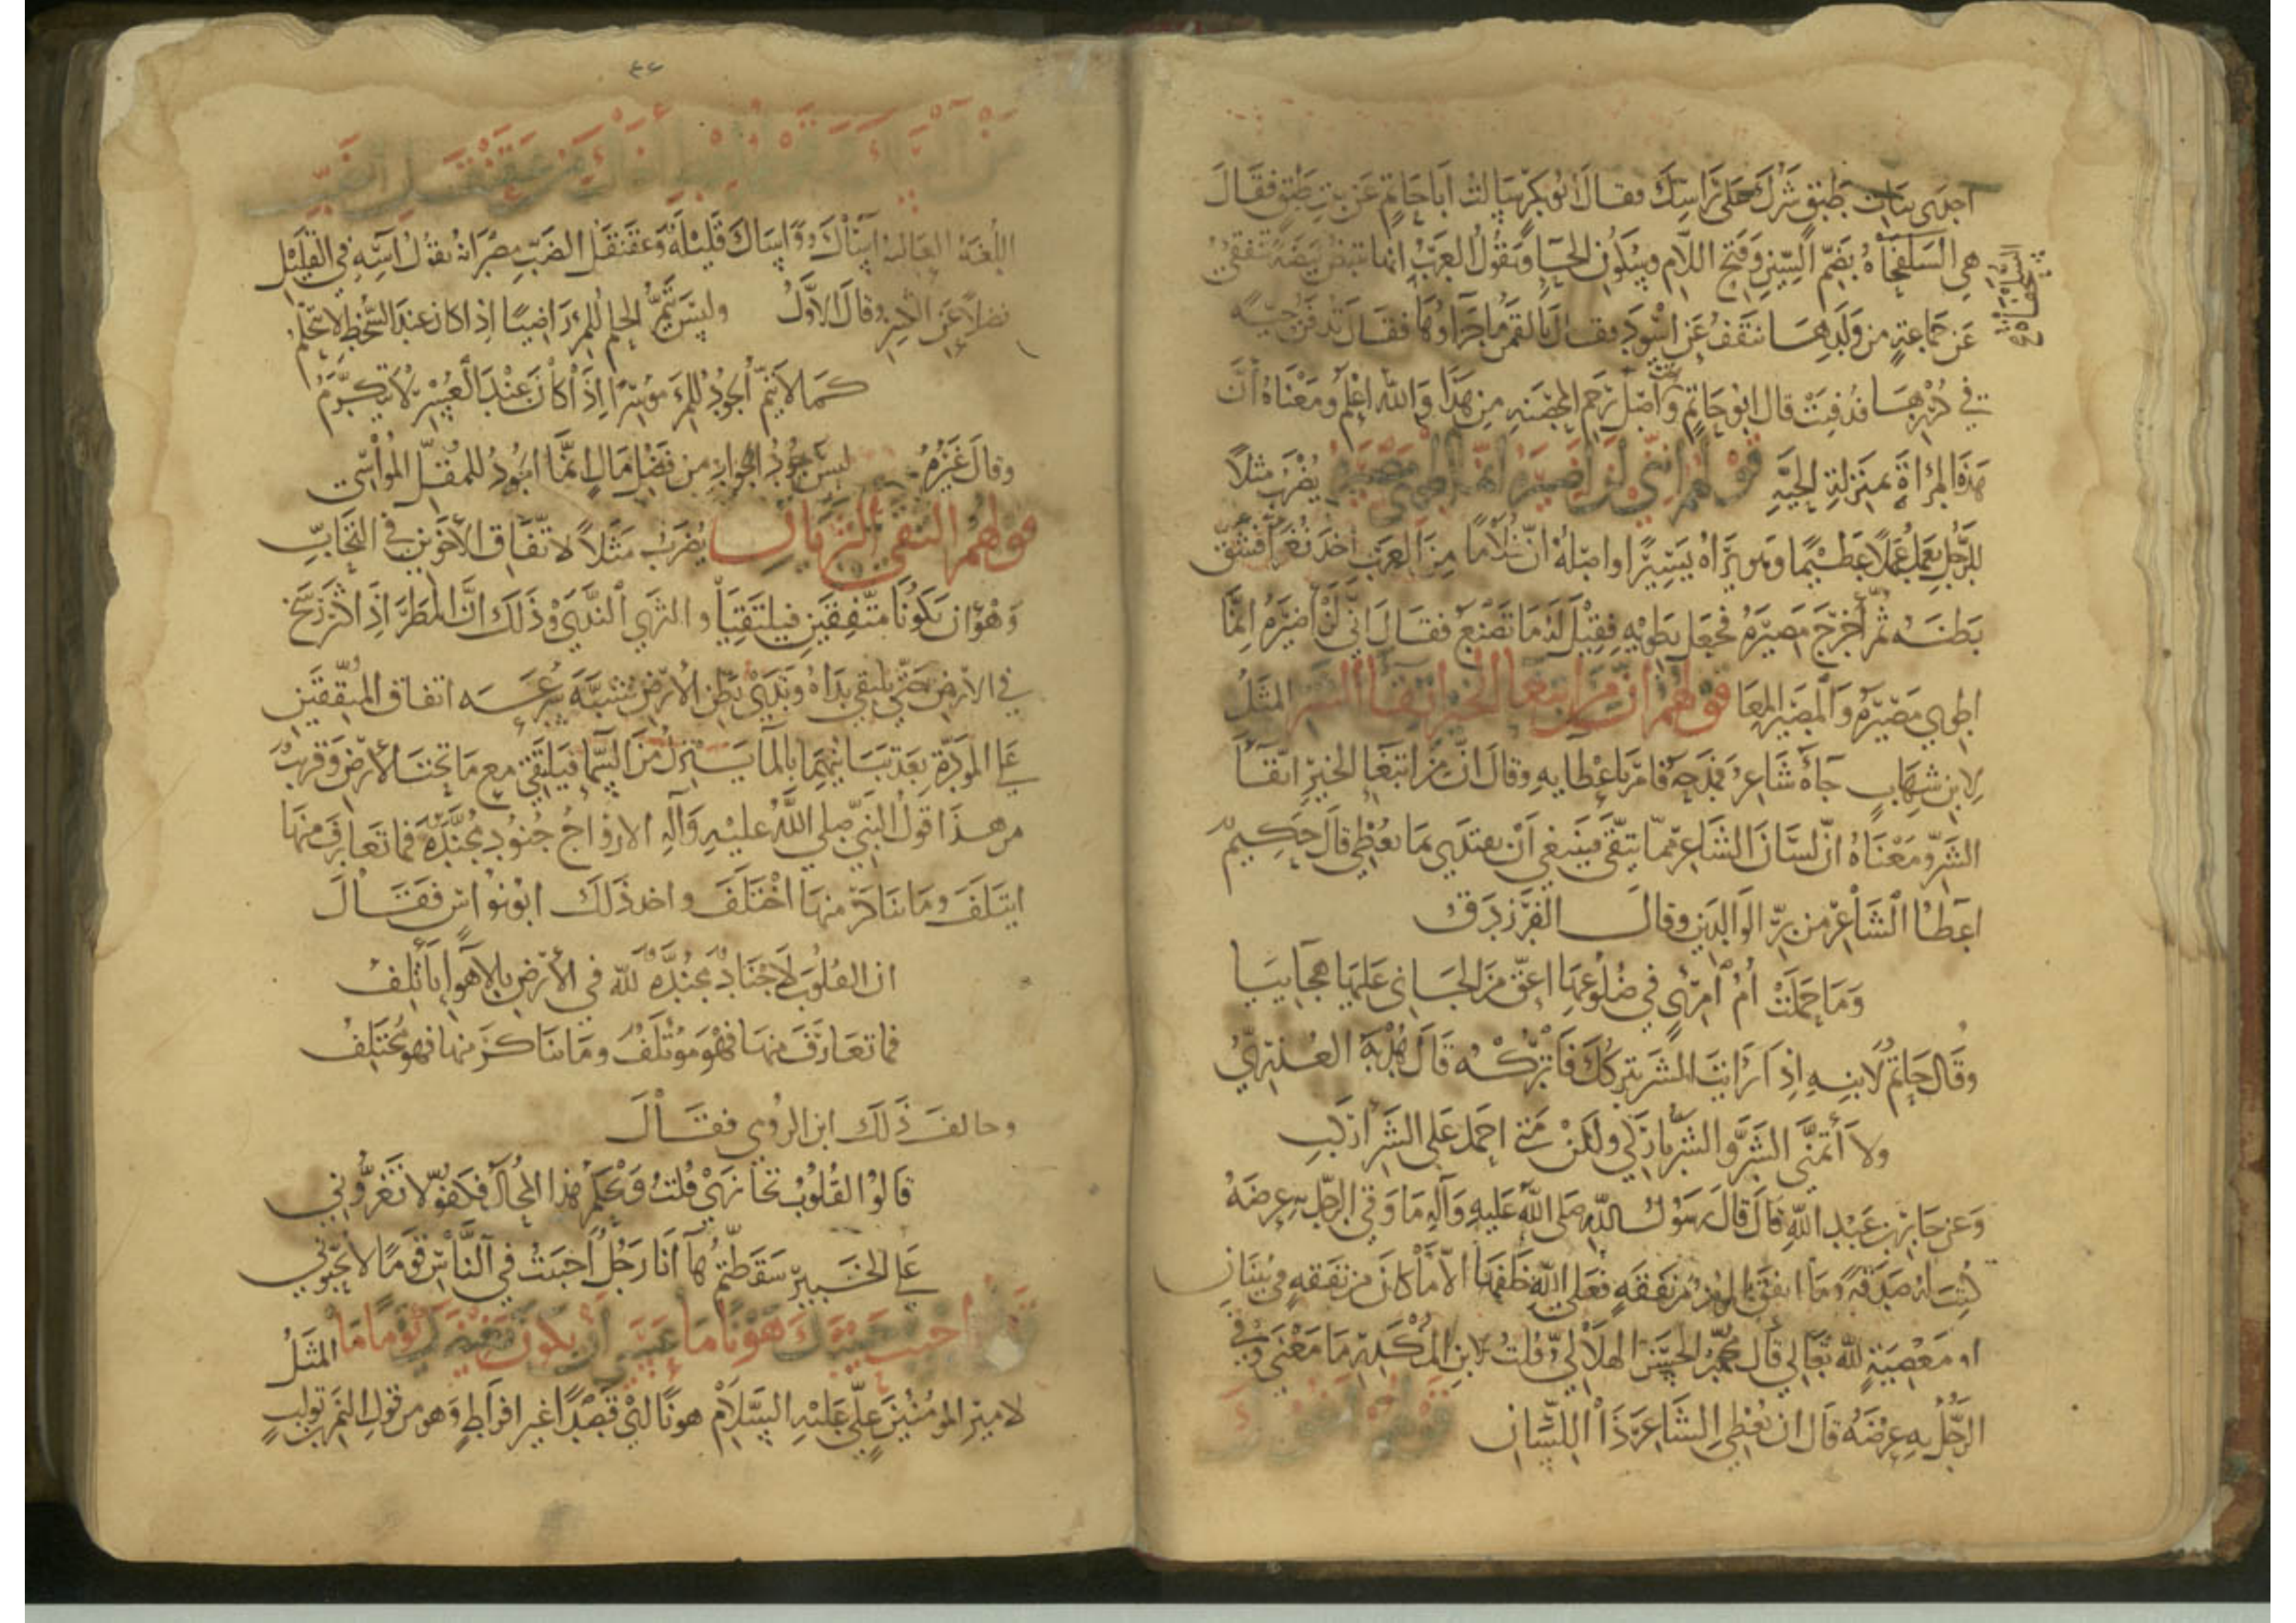 احدى بنات طبق شرك على راسك فقال ابو بكر سالت ابا حاتم عن بنت طبق فقال
هي السلحفاة بضم السين وفتح اللام وسكون الحا وتقول العرب انها تبيض بيضة تنقف
السلحفاة
عن جماعة من ولدها تنقف عن اسود فقال فقال
في فدفنت قال ابو حاتم واصل رجم المحصنه من هذا والله اعلم ومعناه أن
هذه المرأة بمنزلة الحية قولهم اني لن اضيره انما اطوي مصيره يضرب مثلاً
للرجل يعمل عملاً عظيما وهو يراه يسيرا واصله ان غلاما من العرب اخذ فشق
بطنه ثم أخرج مصيره فجعل يطويه فقيل له ما تصنع فقال اني لن اضيره انما
اطوي مصيره والمصير المعا قولهم ان من ابتغا الخير اتقا الشر المثل
لابن شهاب جآه شاعر فمدحه فامر باعطايه وقال ان من ابتغا الخير اتقا
الشر ومعناه ان لسان الشاعر مما يتقى فينبغي أن يفتدي بما يعطي قال حكيم
اعطا الشاعر من بر الوالدين وقال الفرزدق
وما حملت أم امرئ في ضلوعها اعق من الجاني عليها هجاييا
وقال حاتم لابنه اذا رايت الشر يتركك فاتركه قال هدبة العذري
ولا أتمنى الشر والشر تاركي ولكن متى احمل على الشر اركب
وعن جابر بن عبد الله قال قال رسول الله صلى الله عليه وآله ما وقى الرجل به عرضه
كتب له صدقة وما انفق المؤمن من نفقه فعلى الله خلفها الا ما كان من نفقه في بنيان
او معصية لله تعالى قال محمد الحسن الهلالي قلت لابن المكدر ما معنى وقى
الرجل به عرضه قال ان يعطي الشاعر وذا اللسان قولهم اخوك
من
اللغة العالية وعقنقل الضب مصرانه يقول آسه في القليل
فضلاً عن الكثير وقال الاول وليس يتم الحلم للمر راضيا اذا كان عند السخط لا يتحلم
كما لا يتم الجود للمرء موسرا اذا كان عند العسر لا يتكرم
وقال غيره ليس جود الجواد من فضل مال انما الجود للمقل المواسي
قولهم التقى الثريان يضرب مثلاً لاتفاق الأخوين في التحاب
وهو ان يكونا متفقين فيلتقيا والثرى الندى وذلك ان المطر اذا كثر رسخ
في الارض حتى يلتقي نداه وندى بطن الأرض شبه سرعه اتفاق المتفقين
على المودة بعد تباينهما بالما ينزل من السما فيلتقي مع ما تحت الأرض وقريب
من هذا قول النبي صلى الله عليه وآله الارواح جنود مجندة فما تعارف منها
ايتلف وما تناكر منها اختلف واخذ ذلك ابو نواس فقال
ان القلوب لاجناد مجندة لله في الأرض بالاهوا تأتلف
فما تعارف منها فهو مؤتلف وما تناكر منها فهو مختلف
وخالف ذلك ابن الرومي فقال
قالوا القلوب تجازى قلت ويحكم هذا المحال فكفوا لا تغروني
على الخبير سقطتم ها أنا رجل احببت في الناس قوما لا يحبوني
احبب حبيبك هونا ما عسى أن يكون بغيضك يوما ما المثل
لامير المؤمنين علي عليه السلام هونًا اي قصدا غير افراط وهو من قول النمر بن تولب